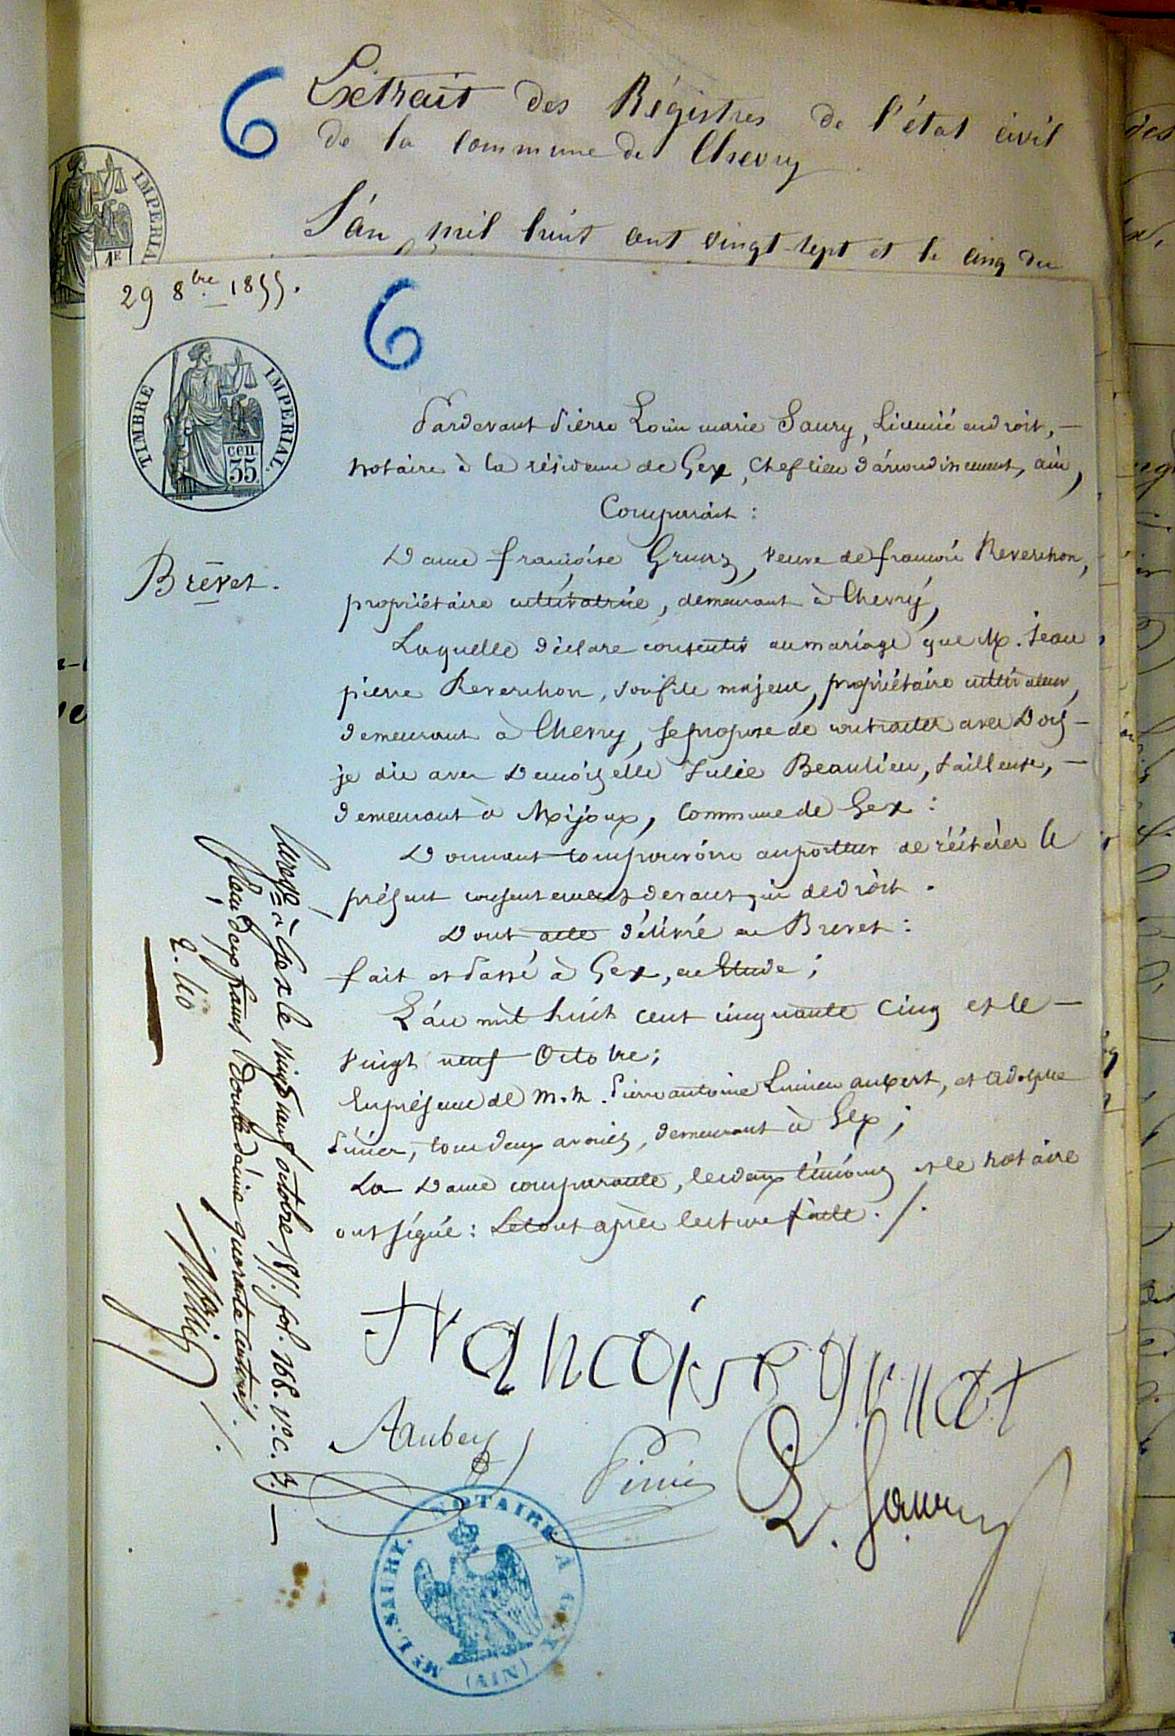 6
Extrait des Régistres de l'état civil
de la Commune de Chevry
L'an mil huit cent vingt-sept et le cinq du
TIMBRE IMPERIAL
29 8bre 1855.
6
TIMBRE IMPERIAL
cen
35
Brevet.
Pardevant Pierre Louis marie Saury, Licencié en droit, —
notaire à la résidence de Gex, chef lieu d'arrondissement, ain,
Comparait :
Dame françoise , veuve de françois Reverchon,
propriétaire cultivatrice, demeurant à Chevry,
Laquelle déclare consentir au mariage que M. Jean
pierre Reverchon, son fils majeur, propriétaire cultivateur,
demeurant à Chevry, se propose de contracter avec Dois-
je dis avec Demoiselle Julie Beaulieu, tailleuse, —
demeurant à Mijoux, Commune de Gex :
Donnant tout pouvoir au porteur de réitérer le
présent consentement devant qui de droit.
Dont acte délivré en Brevet :
fait et Passé à Gex, en Etude ;
L'an mil huit cent cinquante cinq et le —
vingt neuf Octobre ;
En présence de M.M. Pierre antoine Lucien aubert, et adolphe
, tous deux avoués, demeurant à Gex ;
La Dame comparante, les deux témoins et le notaire
ont signé : Le tout après lecture faite ./.
Françoise
Aubert
L. Saury
Enregé à Gex le vingt neuf octobre 1855. fol. 168. v° c. 3. —
Reçu deux francs double décime quarante centimes
2.40
Me L. SAURY, NOTAIRE A GEX (AIN)